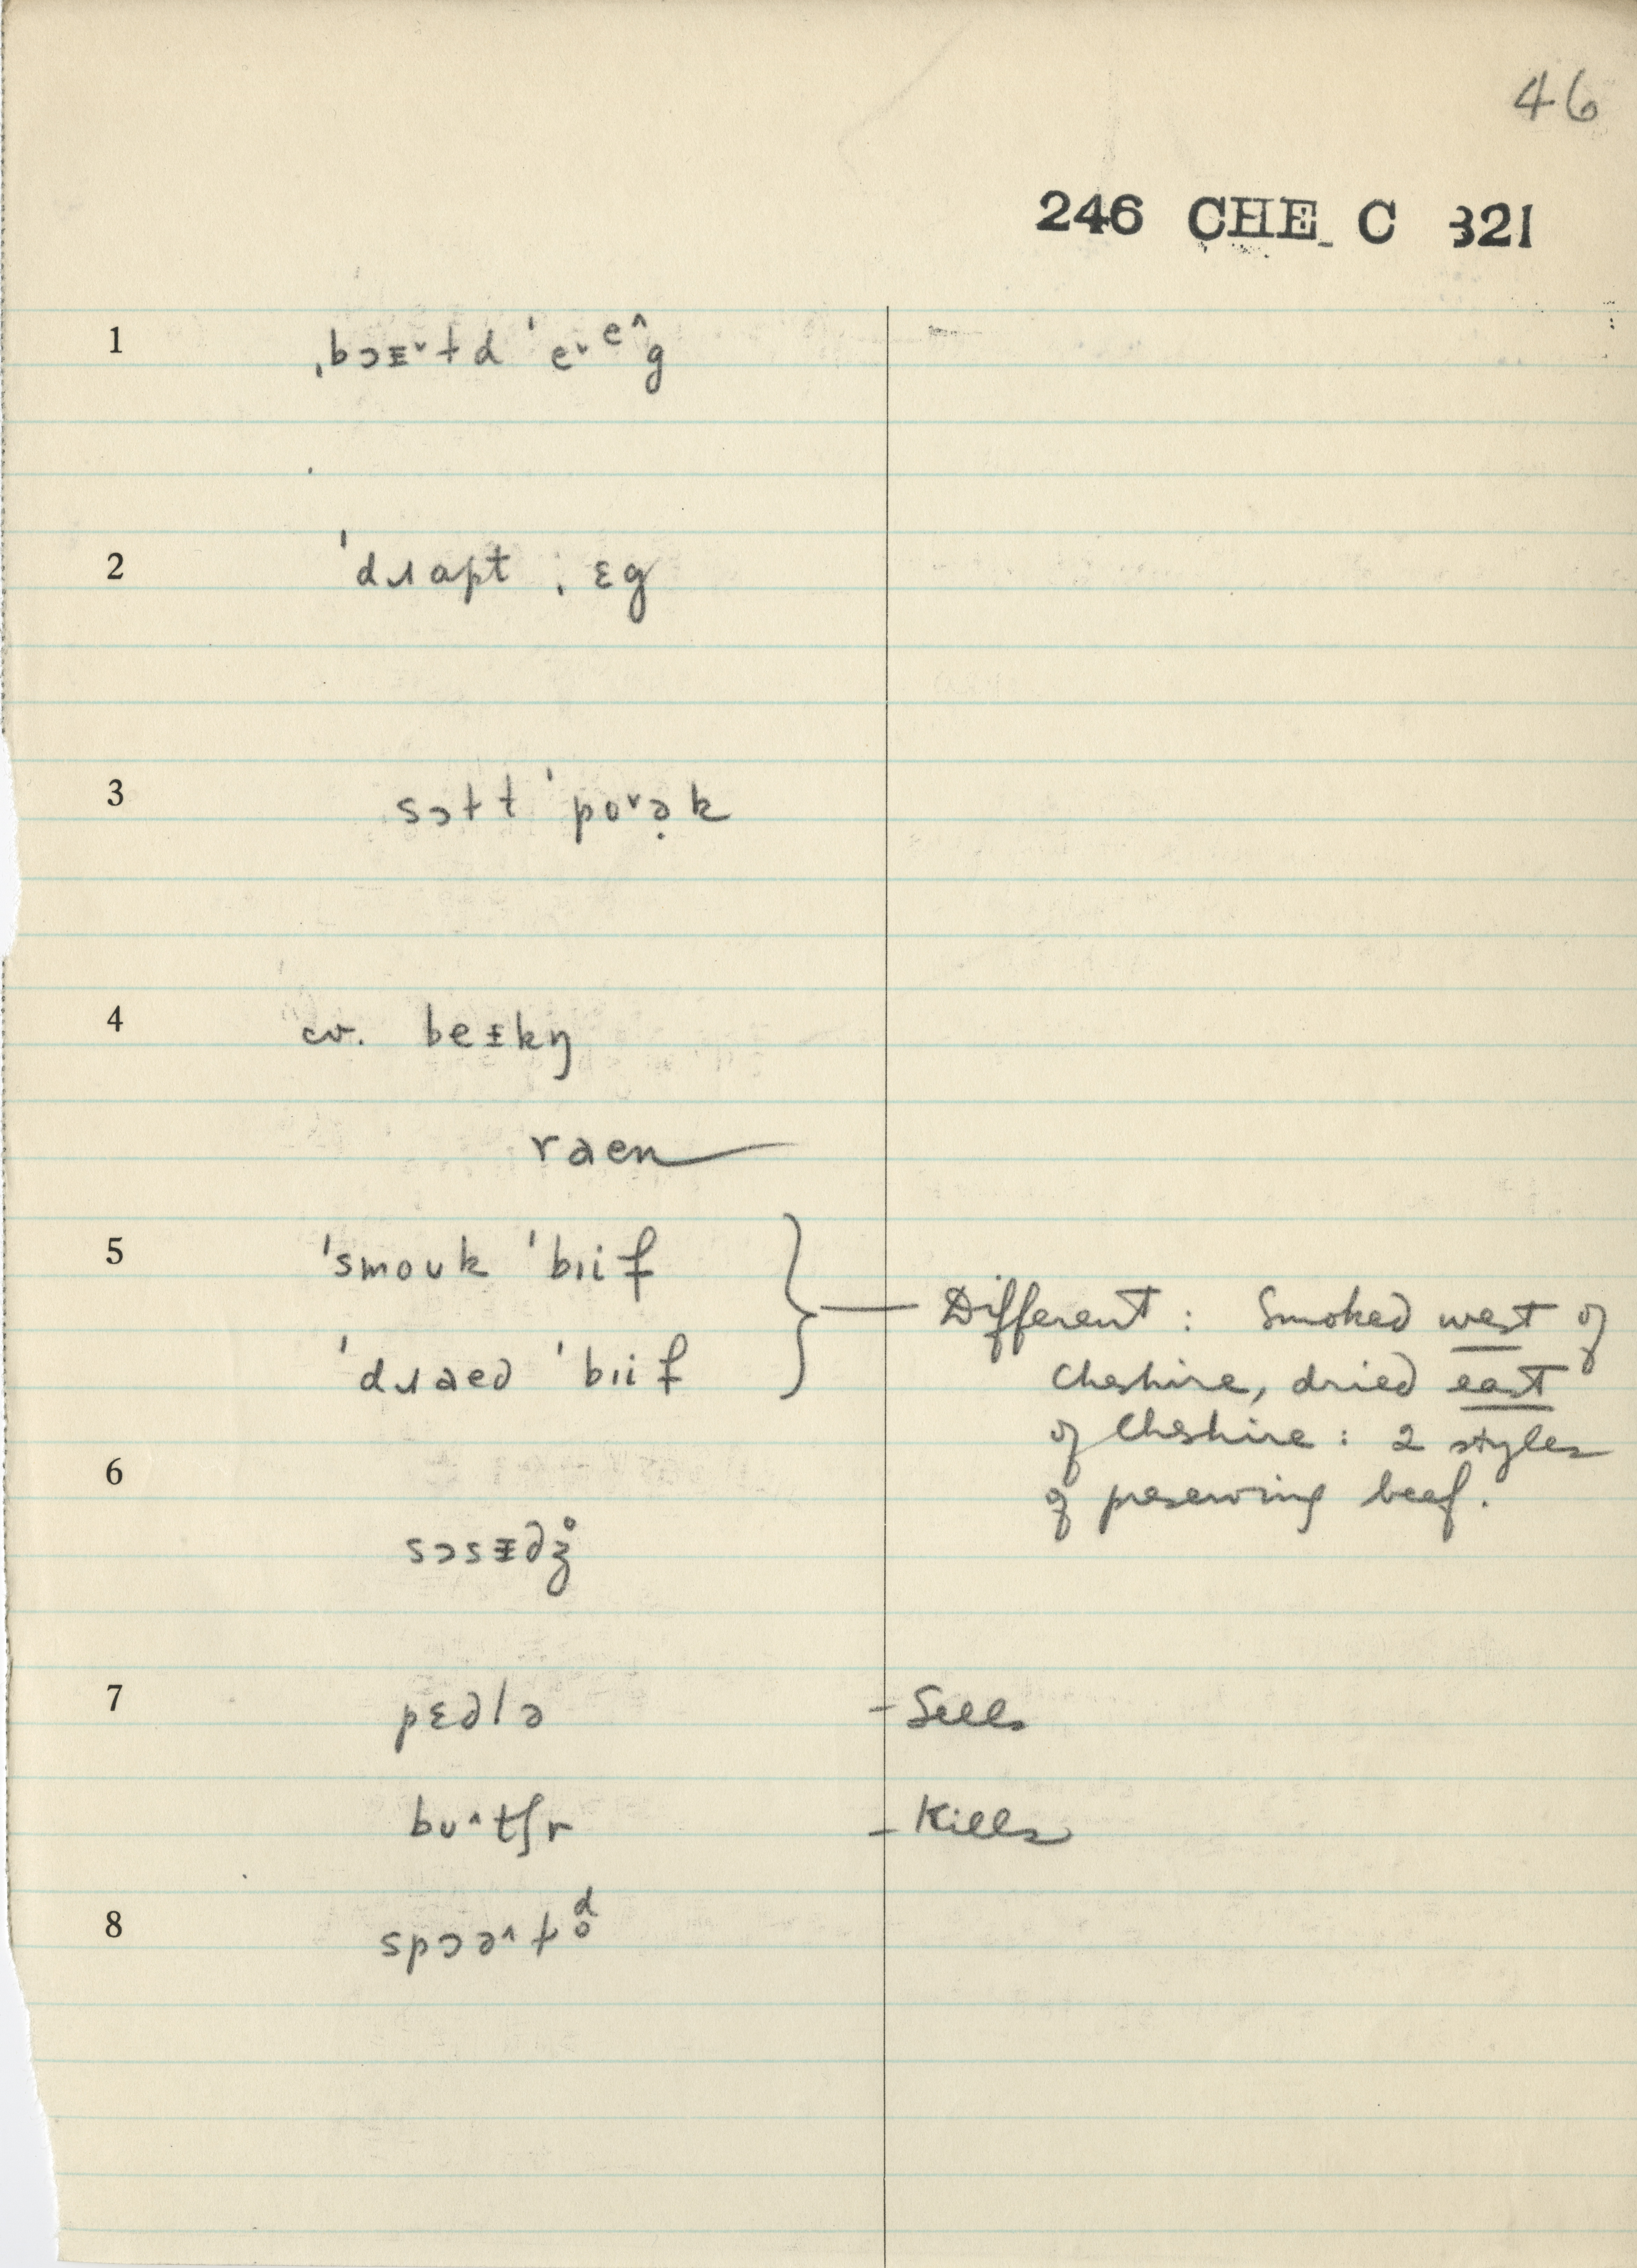 46
246 CHE C 321
1 ˌbɔᵻ˅ɫd ˈe˅eˆg
2 ˈdɹɑpt ˌɛg
3 sɔɫt ˈpo˅ə̣k
4 cv. beᵻkŋ
raen
5 ˈsmouk ˈbɪif
ˈdɹaed ˈbɪif
Different : Smoked west of
Cheshire, dried east
of Cheshire : 2 styles
of preserving beef.
6 sɔsᵻdʒ̊
7 pɛdlə – Sells
bʊˆtʃr – Kills
8 spɔəˆɫd̥